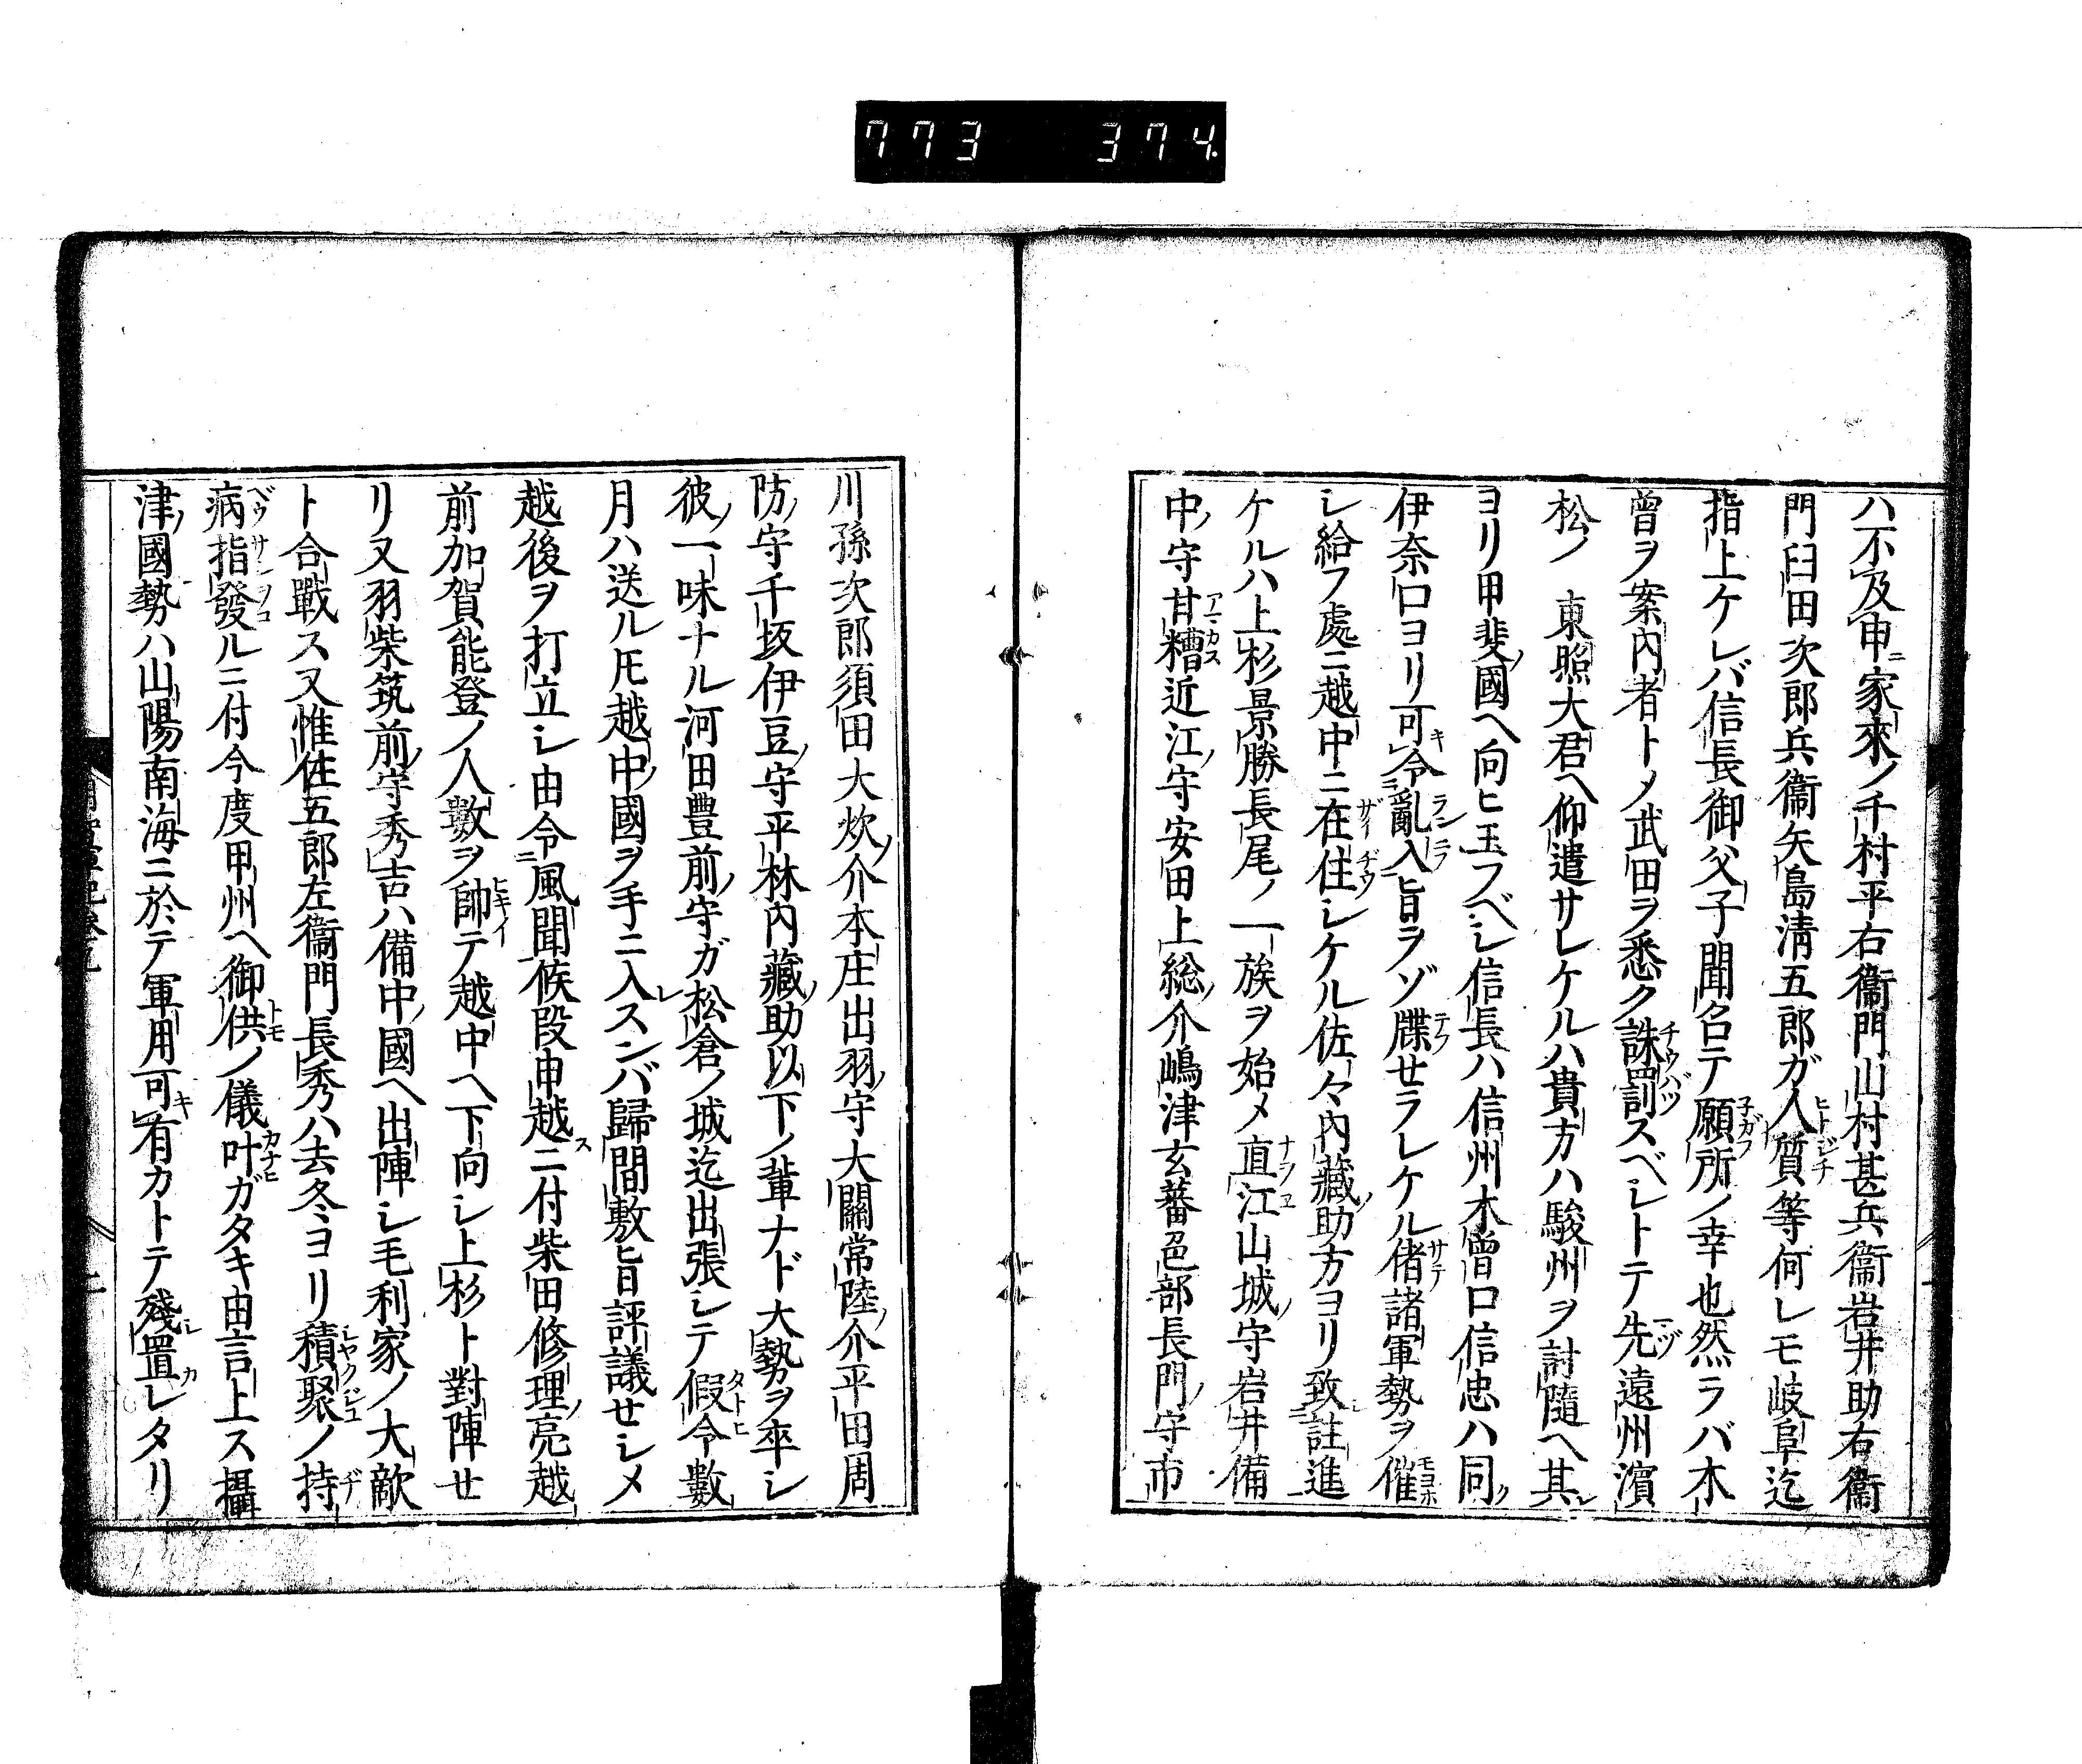 773 374
ハ不及申家來ノ千村平右衞門山村甚兵衞岩井助右衞
門臼田次郎兵衞矢島淸五郎ガ人質等何レモ岐阜迄
指上ケレバ信長御父子聞召テ願所ノ幸也然ラバ木
曾ヲ案內者トメ武田ヲ悉ク誅罰スベシトテ先遠州濱
松ノ 東照大君ヘ仰遣サレケルハ貴方ハ駿州ヲ討隨ヘ其
ヨリ甲斐國ヘ向ヒ玉フベシ信長ハ信州木曾口信忠ハ同
伊奈口ヨリ可令亂入旨ヲゾ牒セラレケル偖諸軍勢ヲ催
シ給フ處ニ越中ニ在住シケル佐々內藏助方ヨリ致註進
ケルハ上杉景勝長尾ノ一族ヲ始メ直江山城守岩井備
中守甘糟近江守安田上総介嶋津玄蕃色部長門守市
川孫次郎須田大炊介本庄出羽守大關常陸介平田周
防守千坂伊豆守平林內藏助以下ノ輩ナド大勢ヲ卒シ
彼一味ナル河田豊前守ガ松倉ノ城迄出張シテ假令數
月ハ送ル圧越中國ヲ手ニ入スンバ歸間敷旨評議せシメ
越後ヲ打立シ由令風聞候段申越ニ付柴田修理亮越
前加賀能登ノ人數ヲ帥テ越中ヘ下向シ上杉ト對陣せ
リ又羽柴筑前守秀吉ハ備中國ヘ出陣シ毛利家ノ大敵
ト合戰ス又惟住五郎左衞門長秀ハ去冬ヨリ積聚ノ持
病指發ルニ付今度甲州ヘ御供ノ儀叶ガタキ由言上ス攝
津國勢ハ山陽南海ニ於テ軍用可有カトテ殘置レタリ